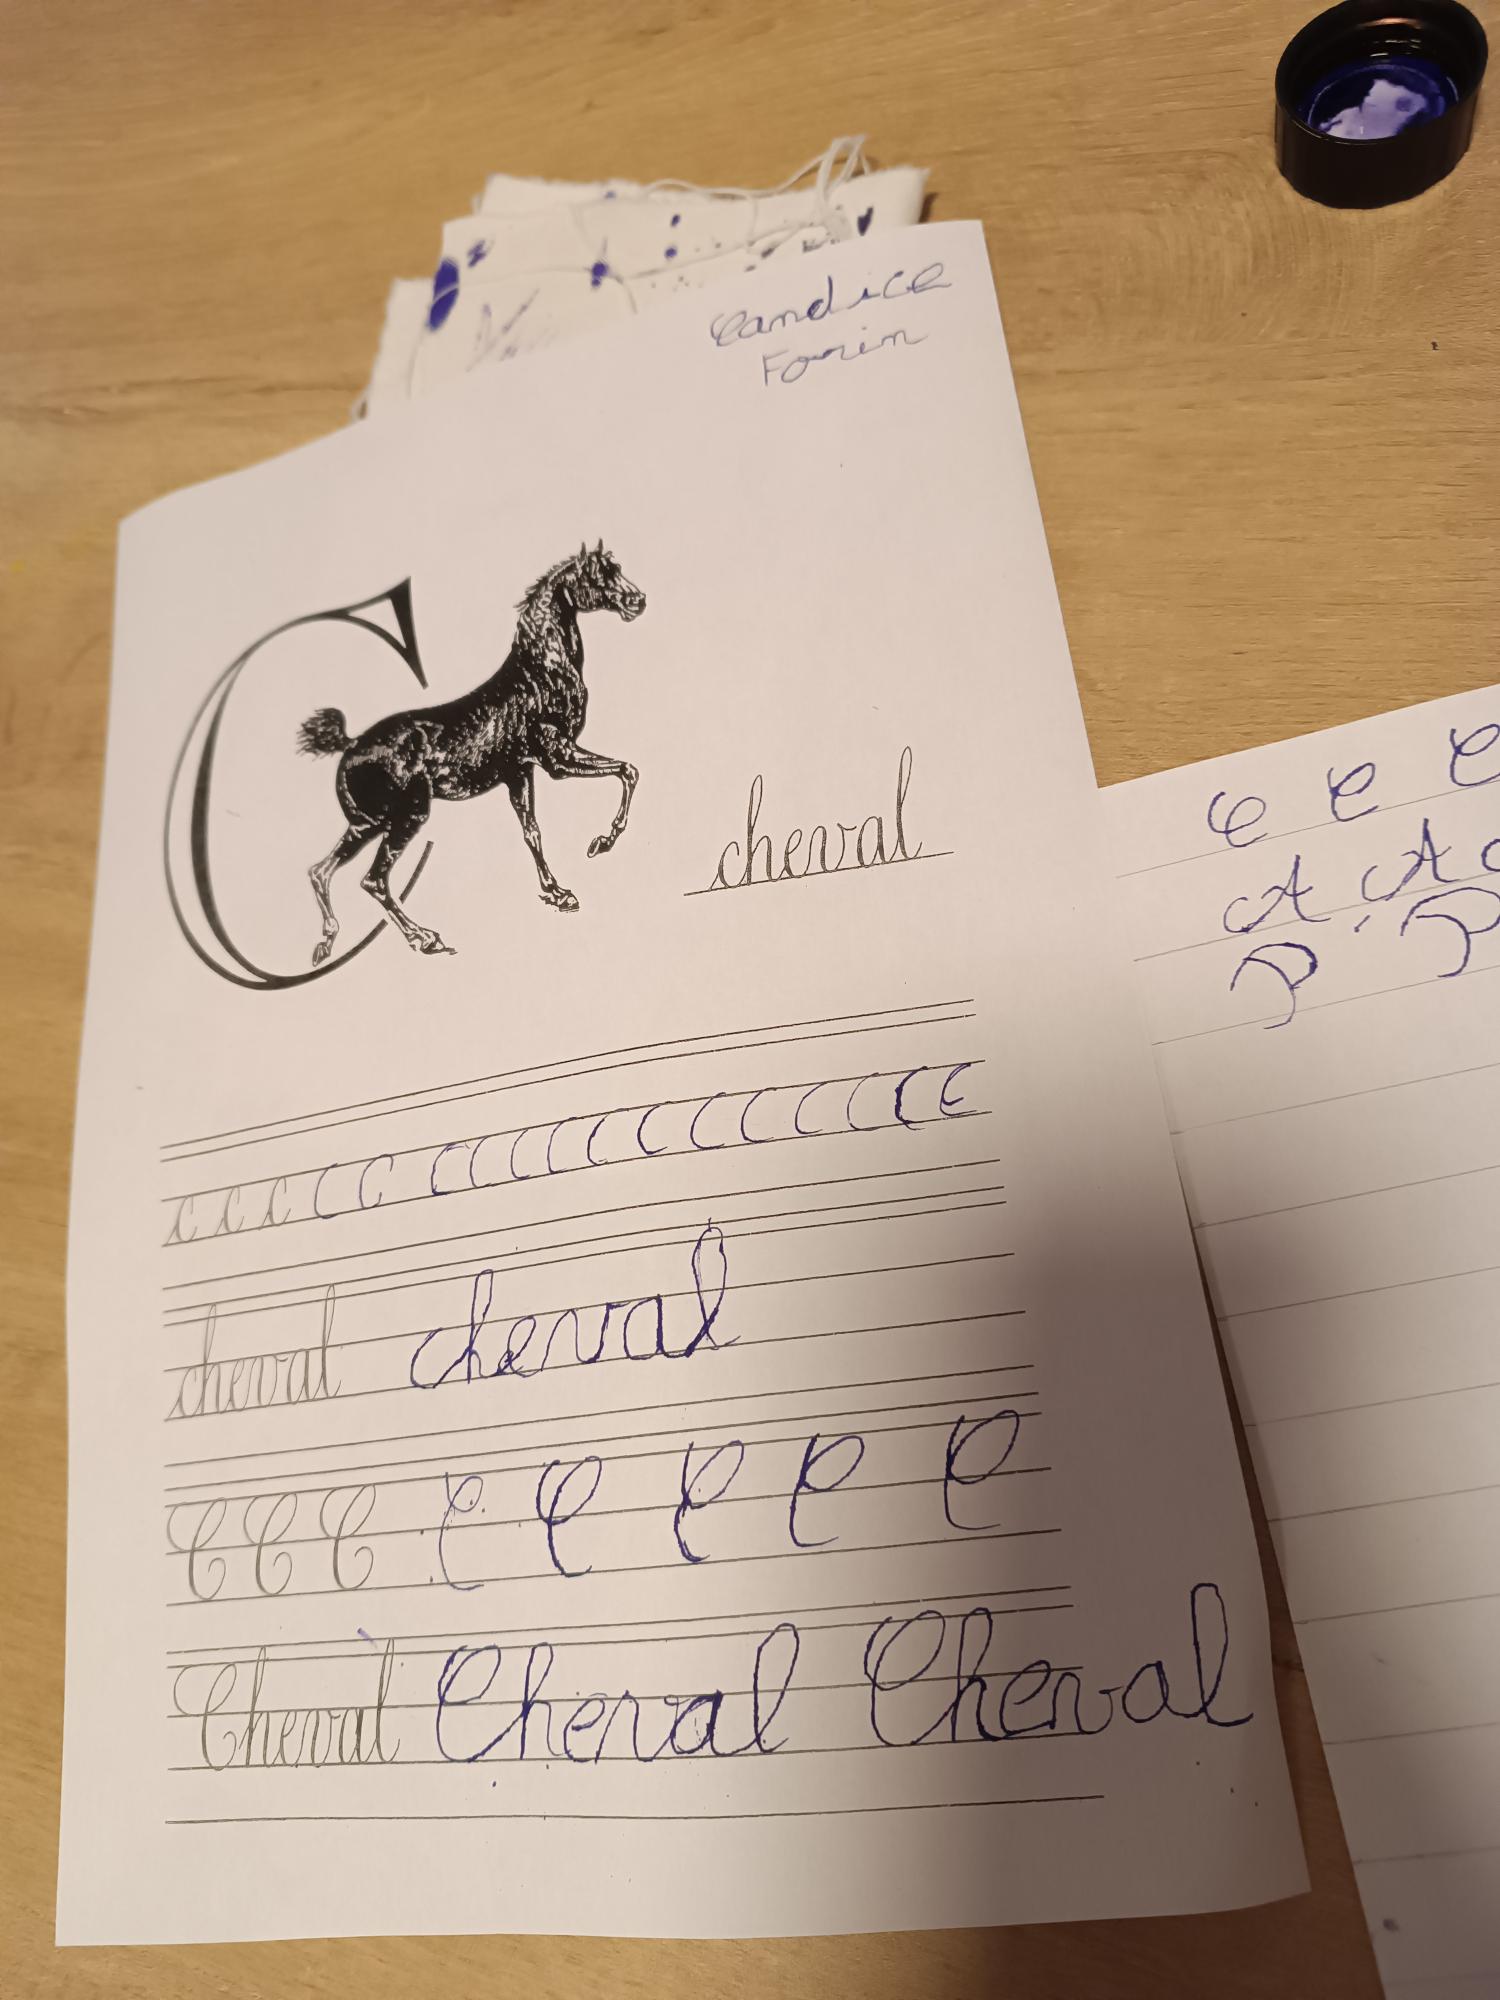 Candice
Forin
C
cheval
c c c c c c c c c c c c c c c c c c
cheval cheval
C C C C C C C C
Cheval Cheval Cheval
C C C
A A
P P